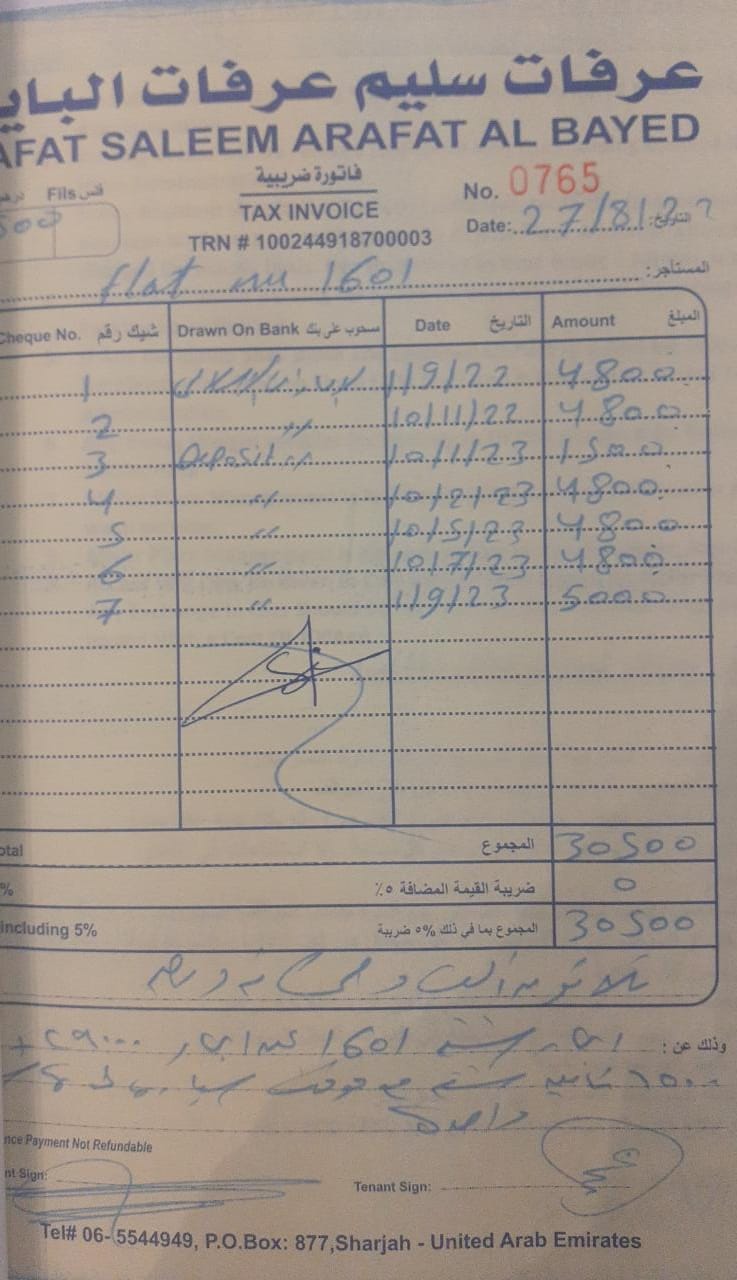 عرفات سليم عرفات الباي
AFAT SALEEM ARAFAT AL BAYED
فاتورة ضريبية
TAX INVOICE
TRN # 100244918700003
Fils فلس درهم
500
No. 0765
Date: 27/8/22 التاريخ:
flat nu 1601 المستأجر:
Cheque No. شيك رقم Drawn On Bank مسحوب على بنك Date التاريخ Amount المبلغ
1 1/9/22 4800
2 " 10/11/22 4800
3 Deposit " 10/1/23 1500
4 " 10/2/23 4800
5 " 10/5/23 4800
6 " 10/7/23 4800
7 " 1/9/23 5000
otal المجموع 30500
% ضريبة القيمة المضافة ٥٪ 0
including 5% المجموع بما في ذلك ٥% ضريبة 30500
ثلاثون الف و خمسمائة درهم
وذلك عن: ايجار شقة 1601 ٢٩٠٠٠ +
١٥٠٠ تأمين شقة مع موقف سيارة
واحدة
nce Payment Not Refundable
nt Sign: Tenant Sign:
Tel# 06-5544949, P.O.Box: 877,Sharjah - United Arab Emirates